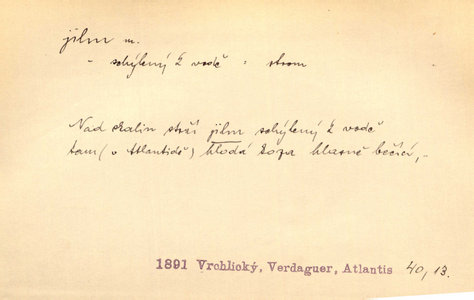 jilm m.
- schýlený k vodě : strom
Nad skalin stráží jilm schýlený k vodě
tam (v Atlantidě) hlodá koza hlasně bečící,-
1891 Vrchlický, Verdaguer, Atlantis 40, 13.